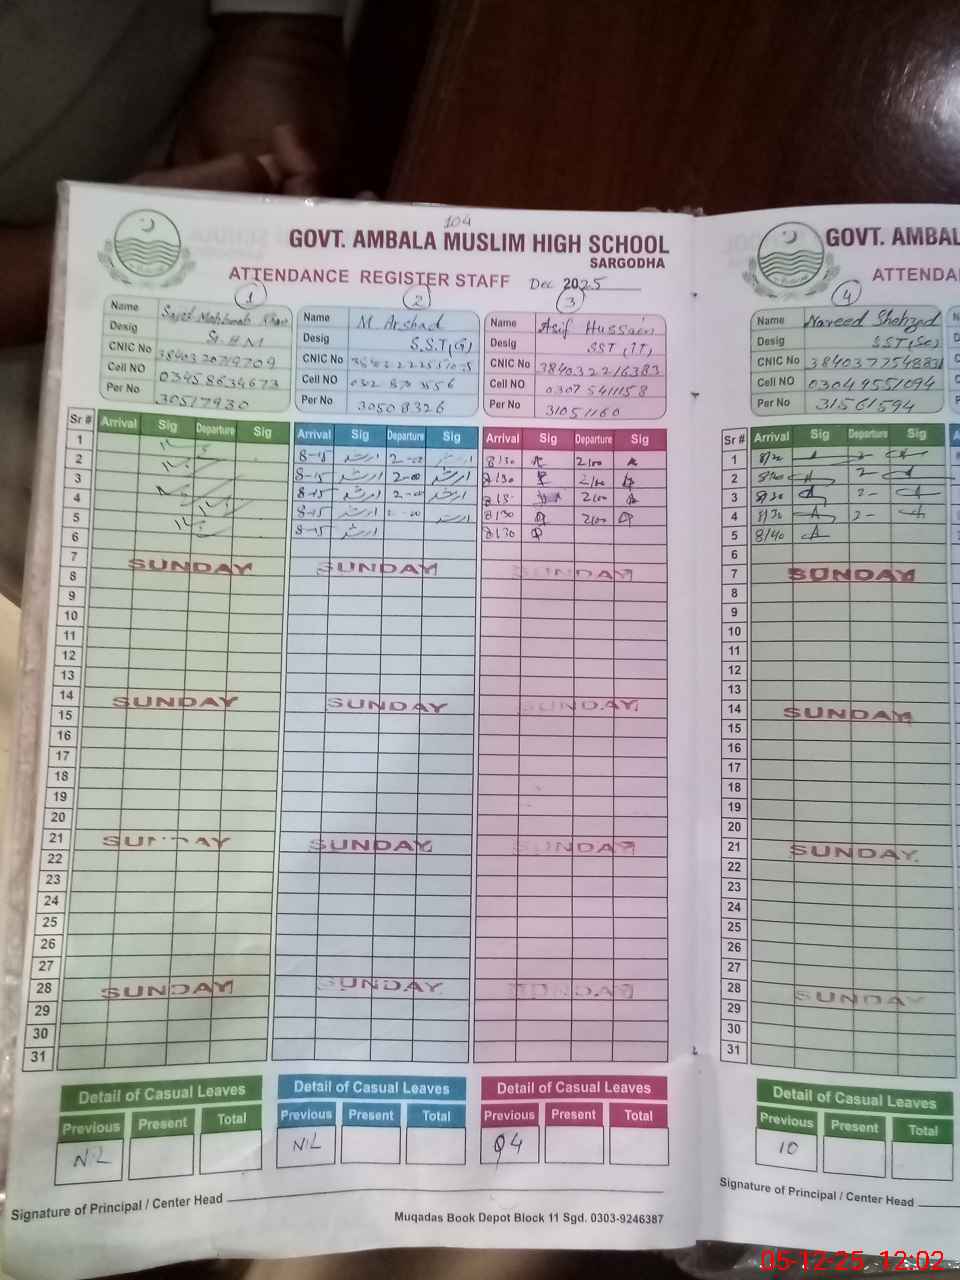 104
GOVT. AMBALA MUSLIM HIGH SCHOOL
SARGODHA
ATTENDANCE REGISTER STAFF Dec 2025
1
Name
Desig
CNIC No
Cell NO 03458634673
Per No 30517930
2
Name M Arshad
Desig S.S.T(G)
CNIC No
Cell NO
Per No 30508326
3
Name Asif Hussain
Desig SST (IT)
CNIC No 3840322216383
Cell NO 03075411158
Per No 31051160
Sr # Arrival Sig Departure Sig
Arrival Sig Departure Sig
Arrival Sig Departure Sig
1 8-15 ارشد 2-00 8/30 2/00
2 8-15 ارشد 2-00 ارشد 8/30 2/00
3 8-15 ارشد 2-00 ارشد 2/00
4 8-15 ارشد ارشد 8/30 2/00
5 8-15 ارشد 8/30
6
7 SUNDAY SUNDAY SUNDAY
8
9
10
11
12
13
14 SUNDAY SUNDAY SUNDAY
15
16
17
18
19
20
21 SUNDAY SUNDAY SUNDAY
22
23
24
25
26
27
28 SUNDAY SUNDAY SUNDAY
29
30
31
Detail of Casual Leaves
Previous Present Total
NIL
Detail of Casual Leaves
Previous Present Total
NIL
Detail of Casual Leaves
Previous Present Total
04
Signature of Principal / Center Head
Muqadas Book Depot Block 11 Sgd. 0303-9246387
GOVT. AMBAL
ATTENDA
4
Name Naveed Shehzad
Desig SST(Sc)
CNIC No 3840377548831
Cell NO 03049551094
Per No 31561594
Sr # Arrival Sig Departure Sig
1 8/20 2-
2 8/20 2-
3 8/20 2-
4 8/20 2-
5 8/40
6
7 SUNDAY
8
9
10
11
12
13
14 SUNDAY
15
16
17
18
19
20
21 SUNDAY
22
23
24
25
26
27
28 SUNDAY
29
30
31
Detail of Casual Leaves
Previous Present Total
10
Signature of Principal / Center Head
05-12-25 12:02